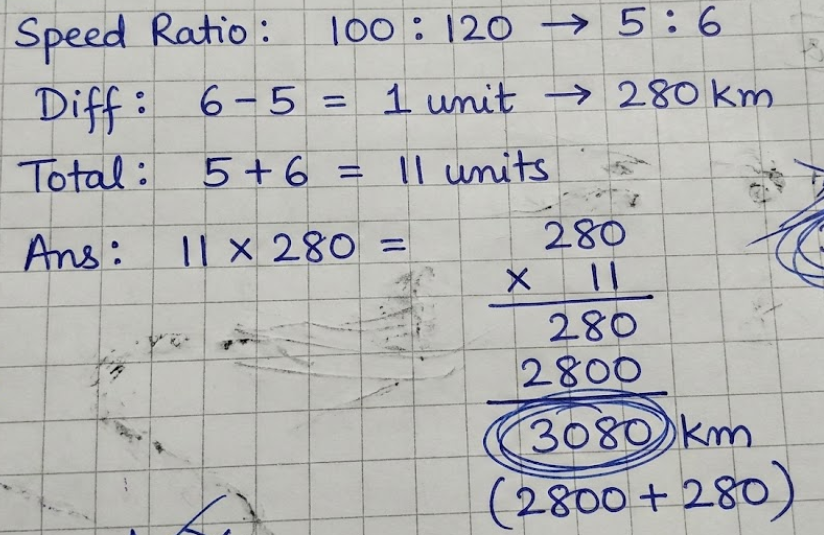 Speed Ratio: 100 : 120 → 5 : 6
Diff: 6 - 5 = 1 unit → 280 km
Total: 5 + 6 = 11 units
Ans: 11 × 280 =
280
× 11
280
2800
3080 km
(2800 + 280)